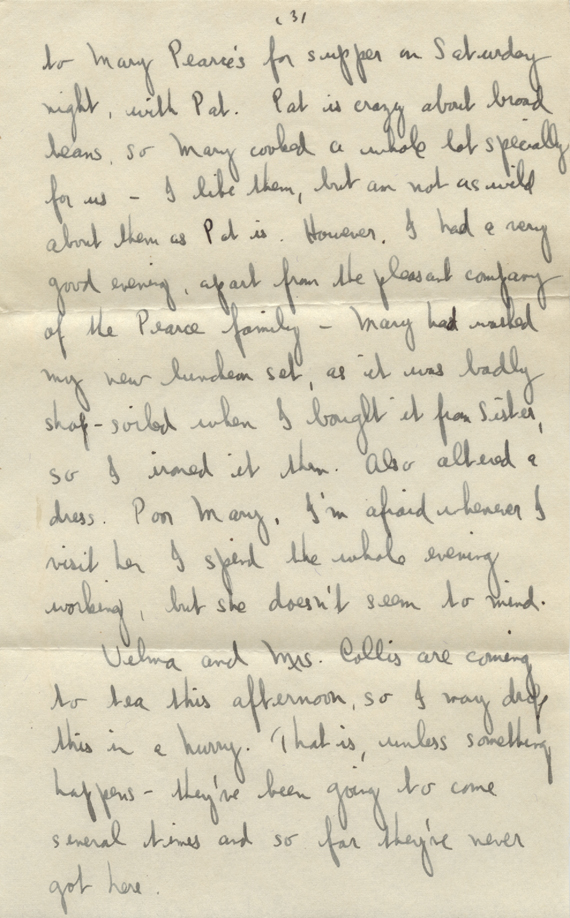 (3)
to Mary Pearce's for supper on Saturday
night, with Pat. Pat is crazy about broad
beans, so Mary cooked a whole lot specially
for us - I like them, but am not as wild
about them as Pat is. However, I had a very
good evening, apart from the pleasant company
of the Pearce family - Mary had washed
my new luncheon set, as it was badly
shop-soiled when I bought it from Sister,
so I ironed it then. Also altered a
dress. Poor Mary, I'm afraid whenever I
visit her I spend the whole evening
working, but she doesn't seem to mind.
Velma and Mrs. Collis are coming
to tea this afternoon, so I may drop
this in a hurry. That is, unless something
happens - they've been going to come
several times and so far they've never
got here.